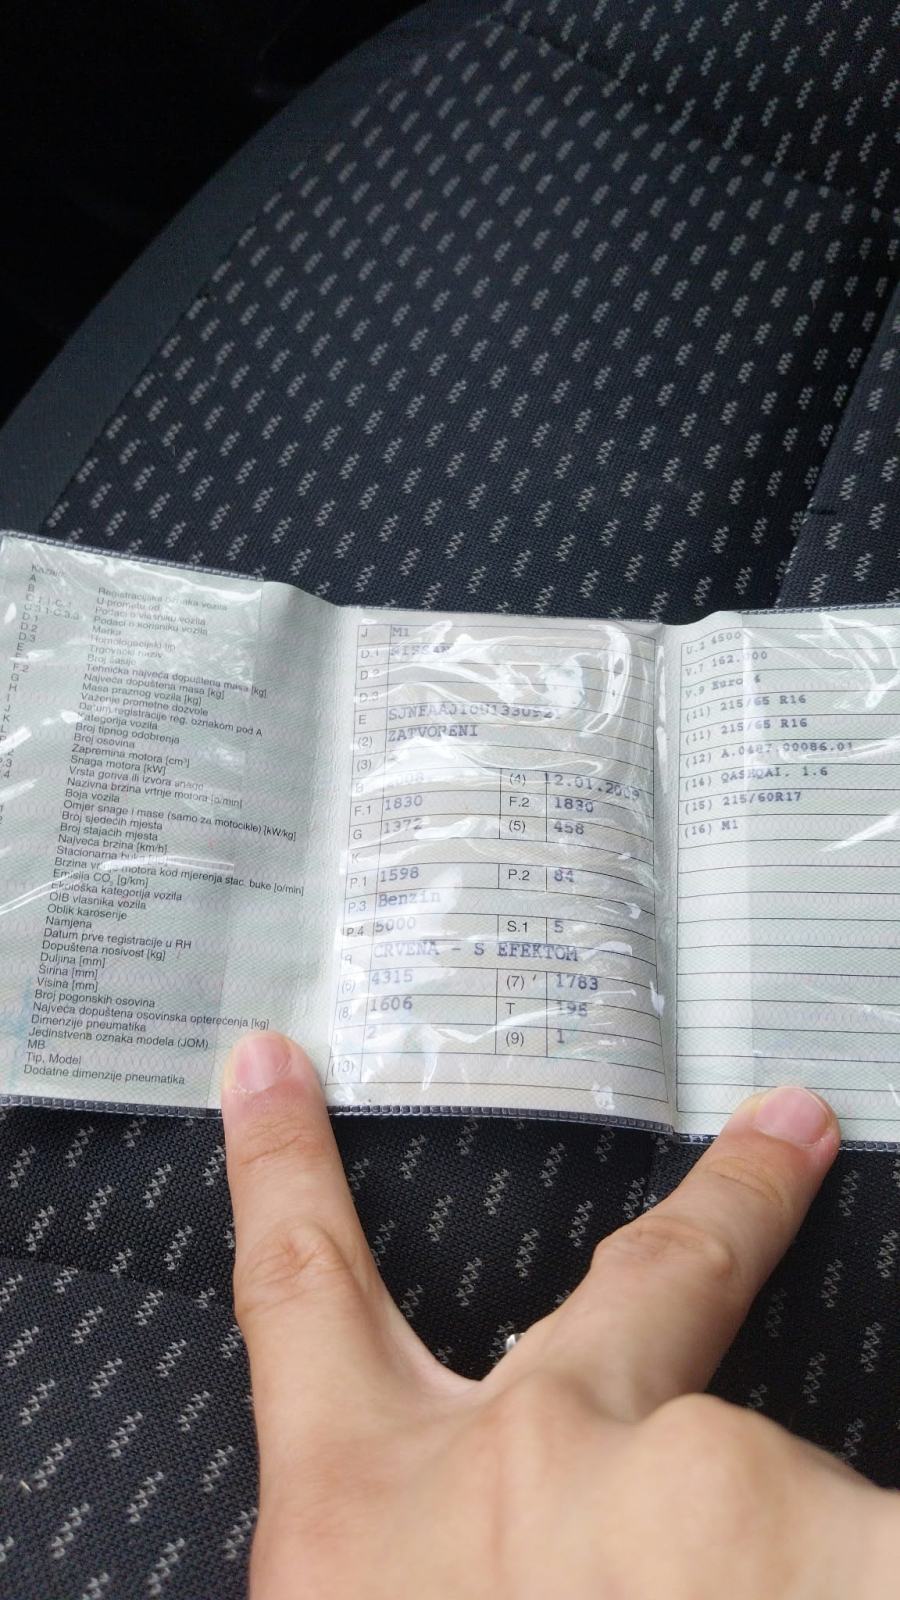 A Registracijska oznaka vozila
B U prometu od
Podaci o vlasniku vozila
Podaci o korisniku vozila
D.1 Marka
D.2 Homologacijski tip
D.3 Trgovački naziv
E Broj šasije
Tehnička najveća dopuštena masa [kg]
F.2 Najveća dopuštena masa [kg]
G Masa praznog vozila [kg]
H Važenje prometne dozvole
I Datum registracije reg. oznakom pod A
J Kategorija vozila
K Broj tipnog odobrenja
L Broj osovina
Zapremina motora [cm³]
Snaga motora [kW]
Vrsta goriva ili izvora snage
Nazivna brzina vrtnje motora [o/min]
Boja vozila
Omjer snage i mase (samo za motocikle) [kW/kg]
Broj sjedećih mjesta
Broj stajaćih mjesta
Najveća brzina [km/h]
Stacionarna buka
Brzina motora kod mjerenja stac. buke [o/min]
Emisija CO₂ [g/km]
Ekološka kategorija vozila
OIB vlasnika vozila
Oblik karoserije
Namjena
Datum prve registracije u RH
Dopuštena nosivost [kg]
Duljina [mm]
Širina [mm]
Visina [mm]
Broj pogonskih osovina
Najveća dopuštena osovinska opterećenja [kg]
Dimenzije pneumatika
Jedinstvena oznaka modela (JOM)
MB
Tip, Model
Dodatne dimenzije pneumatika
J M1
D.1 NISSAN
D.2
D.3
E
(2) ZATVORENI
(3) -
B (4) 12.01.2009
F.1 1830 F.2 1830
G 1372 (5) 458
K
P.1 1598 P.2 84
P.3 Benzin
P.4 5000 S.1 5
R CRVENA - S EFEKTOM
(6) 4315 (7) 1783
(8) 1606 T 195
L 2 (9) 1
(13)
U.2 4500
V.7 162.000
V.9 Euro 4
(11) 215/65 R16
(11) 215/65 R16
(12) A.0487.00086.01
(14) QASHQAI. 1.6
(15) 215/60R17
(16) M1